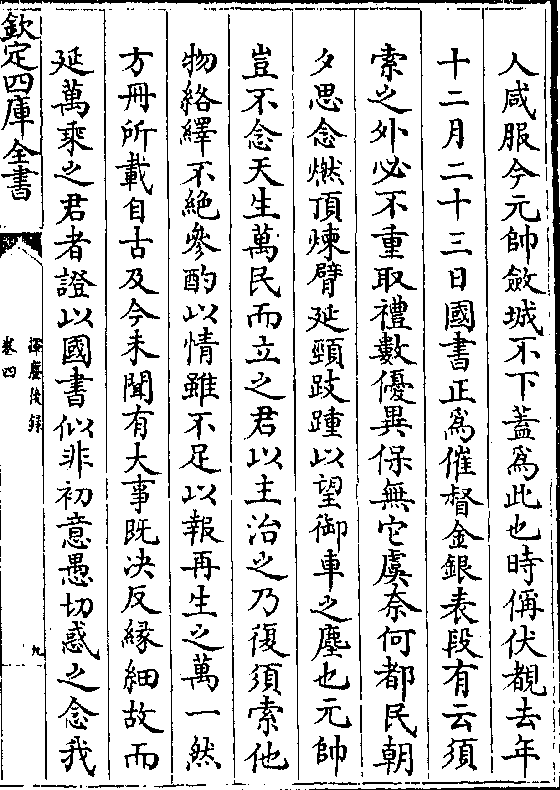 人咸服今元帥斂城不下蓋爲此也時偁伏覩去年
十二月二十三日國書正爲催督金銀表段有云須
索之外必不重取禮數優異保無它虞奈何都民朝
夕思念燃頂煉臂延頸跂踵以望御車之塵也元帥
豈不念天生萬民而立之君以主治之乃復須索他
物絡繹不絶參酌以情雖不足以報再生之萬一然
方冊所載自古及今未聞有大事既决反緣細故而
延萬乘之君者證以國書似非初意愚切惑之念我
欽定四庫全書
揮麈後録
卷四
九